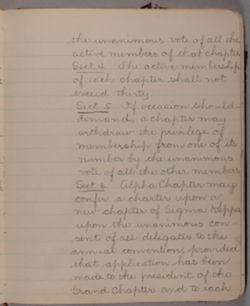 the unanimous vote of all the
active members of that chapter.
Sect 4. The active membership
of each chapter shall not
exceed thirty.
Sect. 5. If occasion should
demand, a chapter may
withdraw the privilege of
membership from one of its
number by the unanimous
vote of all the other members.
Sect. 6. Alpha Chapter may
confer a charter upon a
new chapter of Sigma Kappa
upon the unanimous con-
sent of all delegates to the
annual convention, provided
that application has been
made to the president of the
Grand Chapter and to each